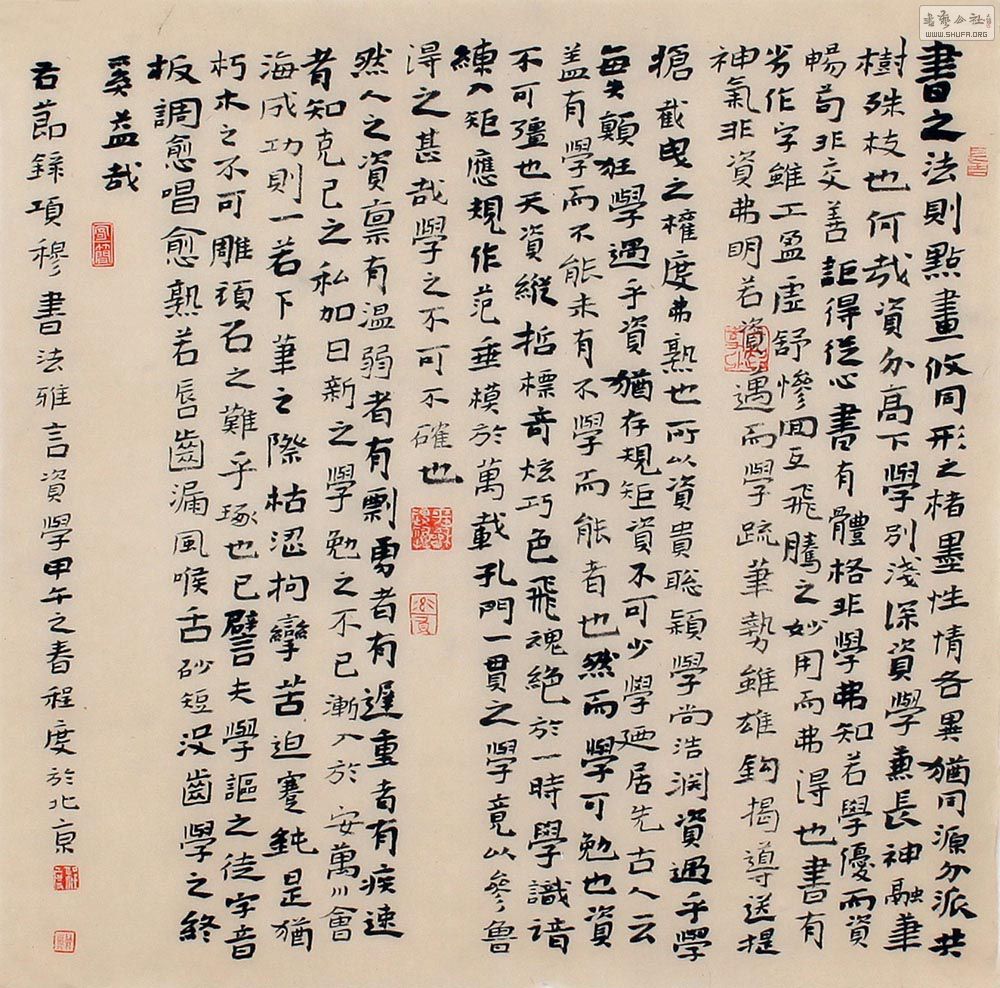 書之法則點畫攸同形之楮墨性情各異猶同源分派共
樹殊枝也何哉資分高下學別淺深資學兼長神融筆
暢苟非交善詎得從心書有體格非學弗知若學優而資
劣作字雖工盈虛舒慘回互飛騰之妙用而弗得也書有
神氣非資弗明若資遇而學疏筆勢雖雄鉤揭導送提
搶截曳之權度弗熟也所以資貴聰穎學尚浩淵資過乎學
每失顛狂學過乎資猶存規矩資不可少學廼居先古人云
盖有學而不能未有不學而能者也然而學可勉也資
不可彊也天資縱哲標奇炫巧色飛魂絕於一時學識諳
練入矩應規作范垂模於萬載孔門一貫之學竟以參魯
得之甚哉學之不可不確也
然人之資稟有溫弱者有剽勇者有遲重者有疾速
者知克己之私加日新之學勉之不已漸入於安萬川會
海成功則一若下筆之際枯澀拘攣苦迫蹇鈍是猶
朽木之不可雕頑石之難乎琢也已譬夫學謳之徒字音
板調愈唱愈熟若唇齒漏風喉舌砂短沒齒學之終
奚益哉
右節錄項穆書法雅言資學甲午之春程度於北京
書藝公社
WWW.SHUFA.ORG